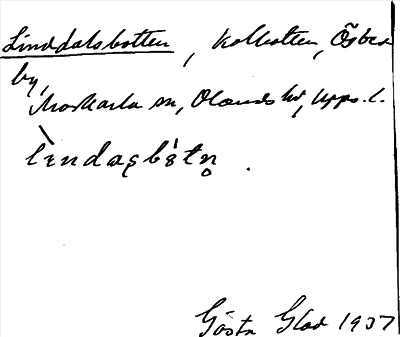 Linddalsbotten, Kolbotten, Östra
by,
Morkarla sn, Olands hd, Upps. l.
lèndasbåtn.
Gösta Glad 1937